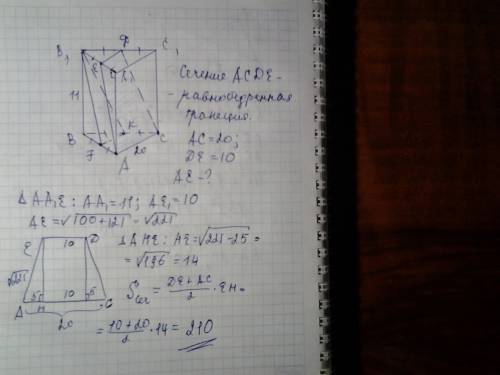 B₁ D C₁
E A₁
11
B K C
F A 20
Сечение ACDE -
- равнобедренная
трапеция.
AC = 20;
DE = 10
AE - ?
Δ AA₁E : AA₁ = 11; AE₁ = 10
AE = √100+121 = √221
E 10 D
√221
A 5 H 10 5 C
20
Δ AHE : HE = √221-25 =
= √196 = 14
Sсеч = DE + AC / 2 · EH =
= 10+20 / 2 · 14 = 210